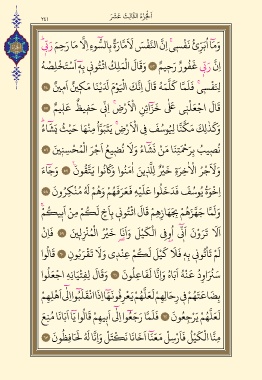 الجزء الثالث عشر
٢٤١
وَمَا أُبَرِّئُ نَفْسِي إِنَّ النَّفْسَ لَأَمَّارَةٌ بِالسُّوءِ إِلَّا مَا رَحِمَ رَبِّي
إِنَّ رَبِّي غَفُورٌ رَحِيمٌ ۝ وَقَالَ الْمَلِكُ ائْتُونِي بِهِ أَسْتَخْلِصْهُ
لِنَفْسِي فَلَمَّا كَلَّمَهُ قَالَ إِنَّكَ الْيَوْمَ لَدَيْنَا مَكِينٌ أَمِينٌ ۝
قَالَ اجْعَلْنِي عَلَى خَزَائِنِ الْأَرْضِ إِنِّي حَفِيظٌ عَلِيمٌ ۝
وَكَذَلِكَ مَكَّنَّا لِيُوسُفَ فِي الْأَرْضِ يَتَبَوَّأُ مِنْهَا حَيْثُ يَشَاءُ
نُصِيبُ بِرَحْمَتِنَا مَنْ نَشَاءُ وَلَا نُضِيعُ أَجْرَ الْمُحْسِنِينَ ۝
وَلَأَجْرُ الْآخِرَةِ خَيْرٌ لِلَّذِينَ آمَنُوا وَكَانُوا يَتَّقُونَ ۝ وَجَاءَ
إِخْوَةُ يُوسُفَ فَدَخَلُوا عَلَيْهِ فَعَرَفَهُمْ وَهُمْ لَهُ مُنْكِرُونَ ۝
وَلَمَّا جَهَّزَهُمْ بِجَهَازِهِمْ قَالَ ائْتُونِي بِأَخٍ لَكُمْ مِنْ أَبِيكُمْ
أَلَا تَرَوْنَ أَنِّي أُوفِي الْكَيْلَ وَأَنَا خَيْرُ الْمُنْزِلِينَ ۝ فَإِنْ
لَمْ تَأْتُونِي بِهِ فَلَا كَيْلَ لَكُمْ عِنْدِي وَلَا تَقْرَبُونِ ۝ قَالُوا
سَنُرَاوِدُ عَنْهُ أَبَاهُ وَإِنَّا لَفَاعِلُونَ ۝ وَقَالَ لِفِتْيَانِهِ اجْعَلُوا
بِضَاعَتَهُمْ فِي رِحَالِهِمْ لَعَلَّهُمْ يَعْرِفُونَهَا إِذَا انْقَلَبُوا إِلَى أَهْلِهِمْ
لَعَلَّهُمْ يَرْجِعُونَ ۝ فَلَمَّا رَجَعُوا إِلَى أَبِيهِمْ قَالُوا يَا أَبَانَا مُنِعَ
مِنَّا الْكَيْلُ فَأَرْسِلْ مَعَنَا أَخَانَا نَكْتَلْ وَإِنَّا لَهُ لَحَافِظُونَ ۝